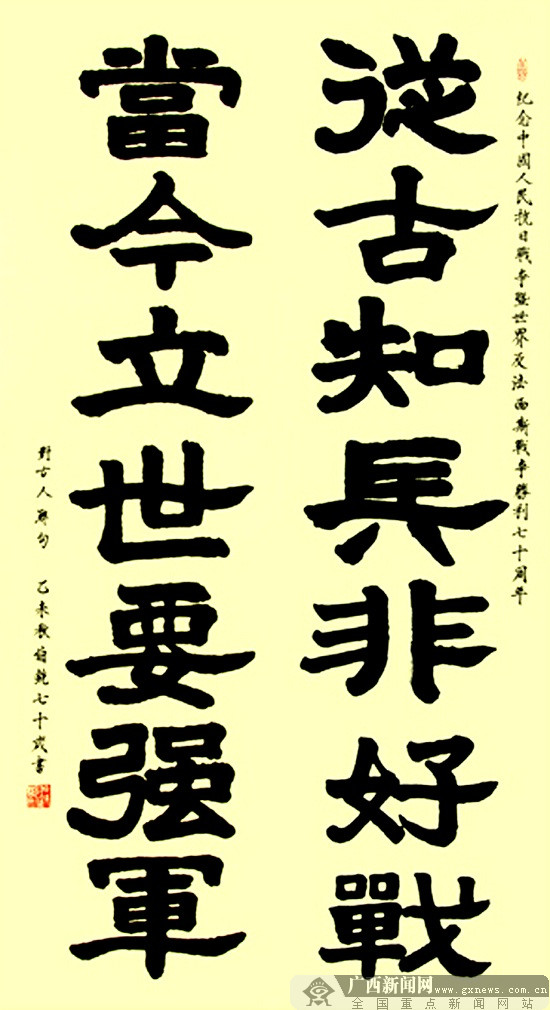 纪念中國人民抗日戰争暨世界反法西斯戰争勝利七十周年
從古知兵非好戰
當今立世要强軍
對古人聯句 乙未秋伯乾七十歲書
广西新闻网
www.gxnews.com.cn
全国重点新闻网站